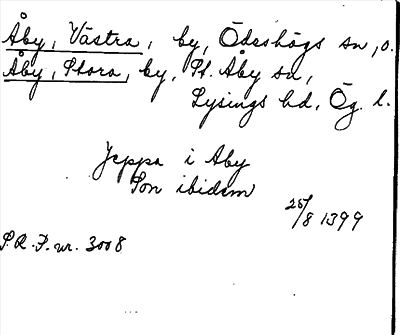 Åby, Västra, by, Ödeshögs sn, o.
Åby, Stora, by, St. Åby sn,
Lysings hd, Ög. l.
Jeppa i Aby
Son ibidem
25/8 1399
S.R.P. nr. 3008